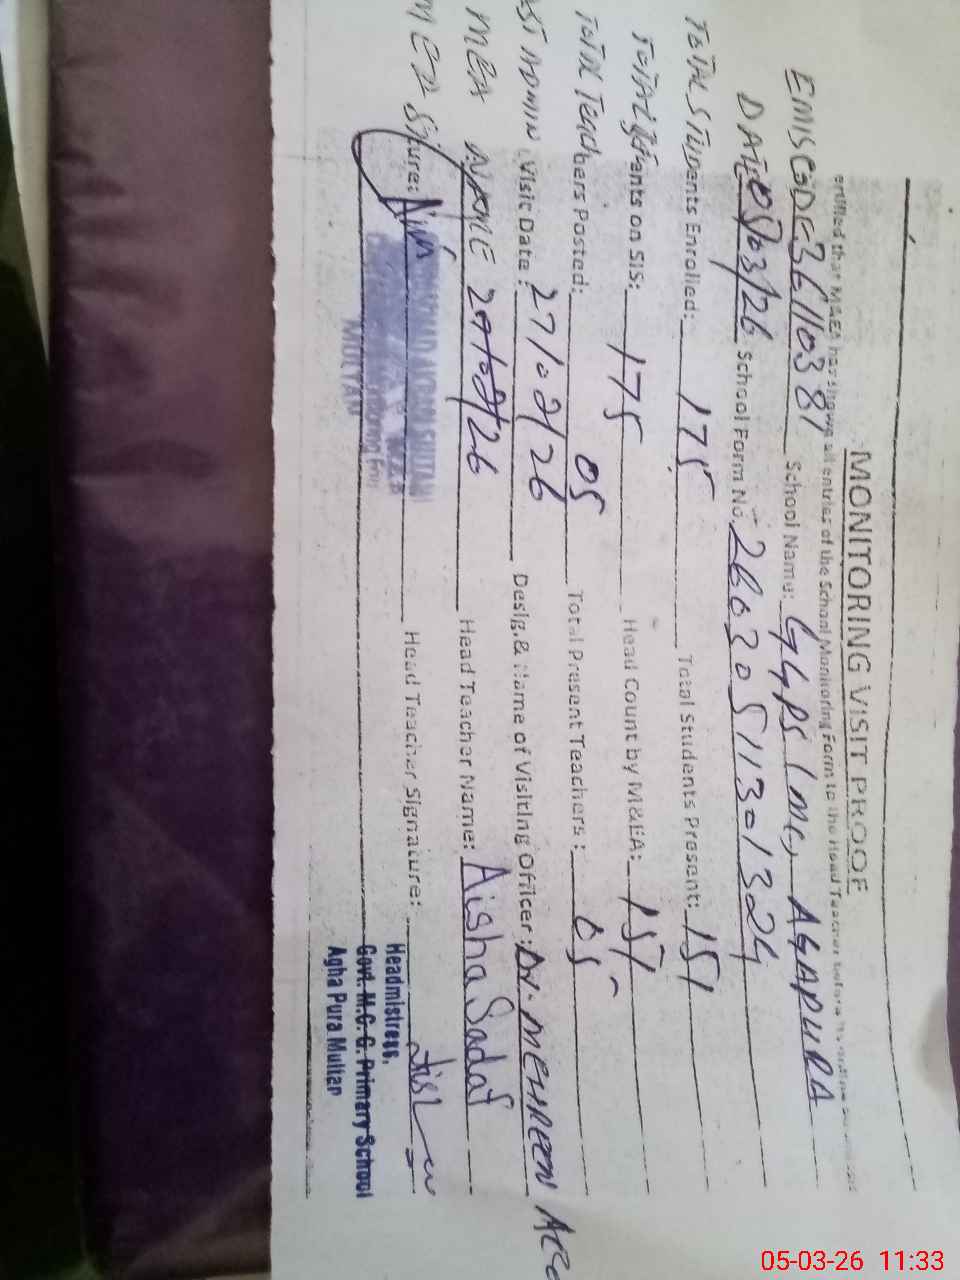 MONITORING VISIT PROOF
entified that M&EA has shown all entries of the School Monitoring Form to the Head Teacher before
EMIS CODE 36110381 School Name: GGPS (MC) AGAPURA
DATE 05/03/26 School Form No. 26030511301324
TOTAL STUDENTS Enrolled: 175 Total Students Present: 151
TOTAL on SIS: 175 Head Count by M&EA: 151
TOTAL Teachers Posted: 05 Total Present Teachers: 05
AST ADMIN Visit Date: 27/02/26 Desig.& Name of Visiting Officer: Dr. MEHREEN
MEA NAME Head Teacher Name: Aisha Sadaf
Head Teacher Signature:
MUHAMMAD AKRAM SULTANI
MULTAN
Headmistress,
Govt. M.C. G. Primary School
Agha Pura Multan
05-03-26 11:33